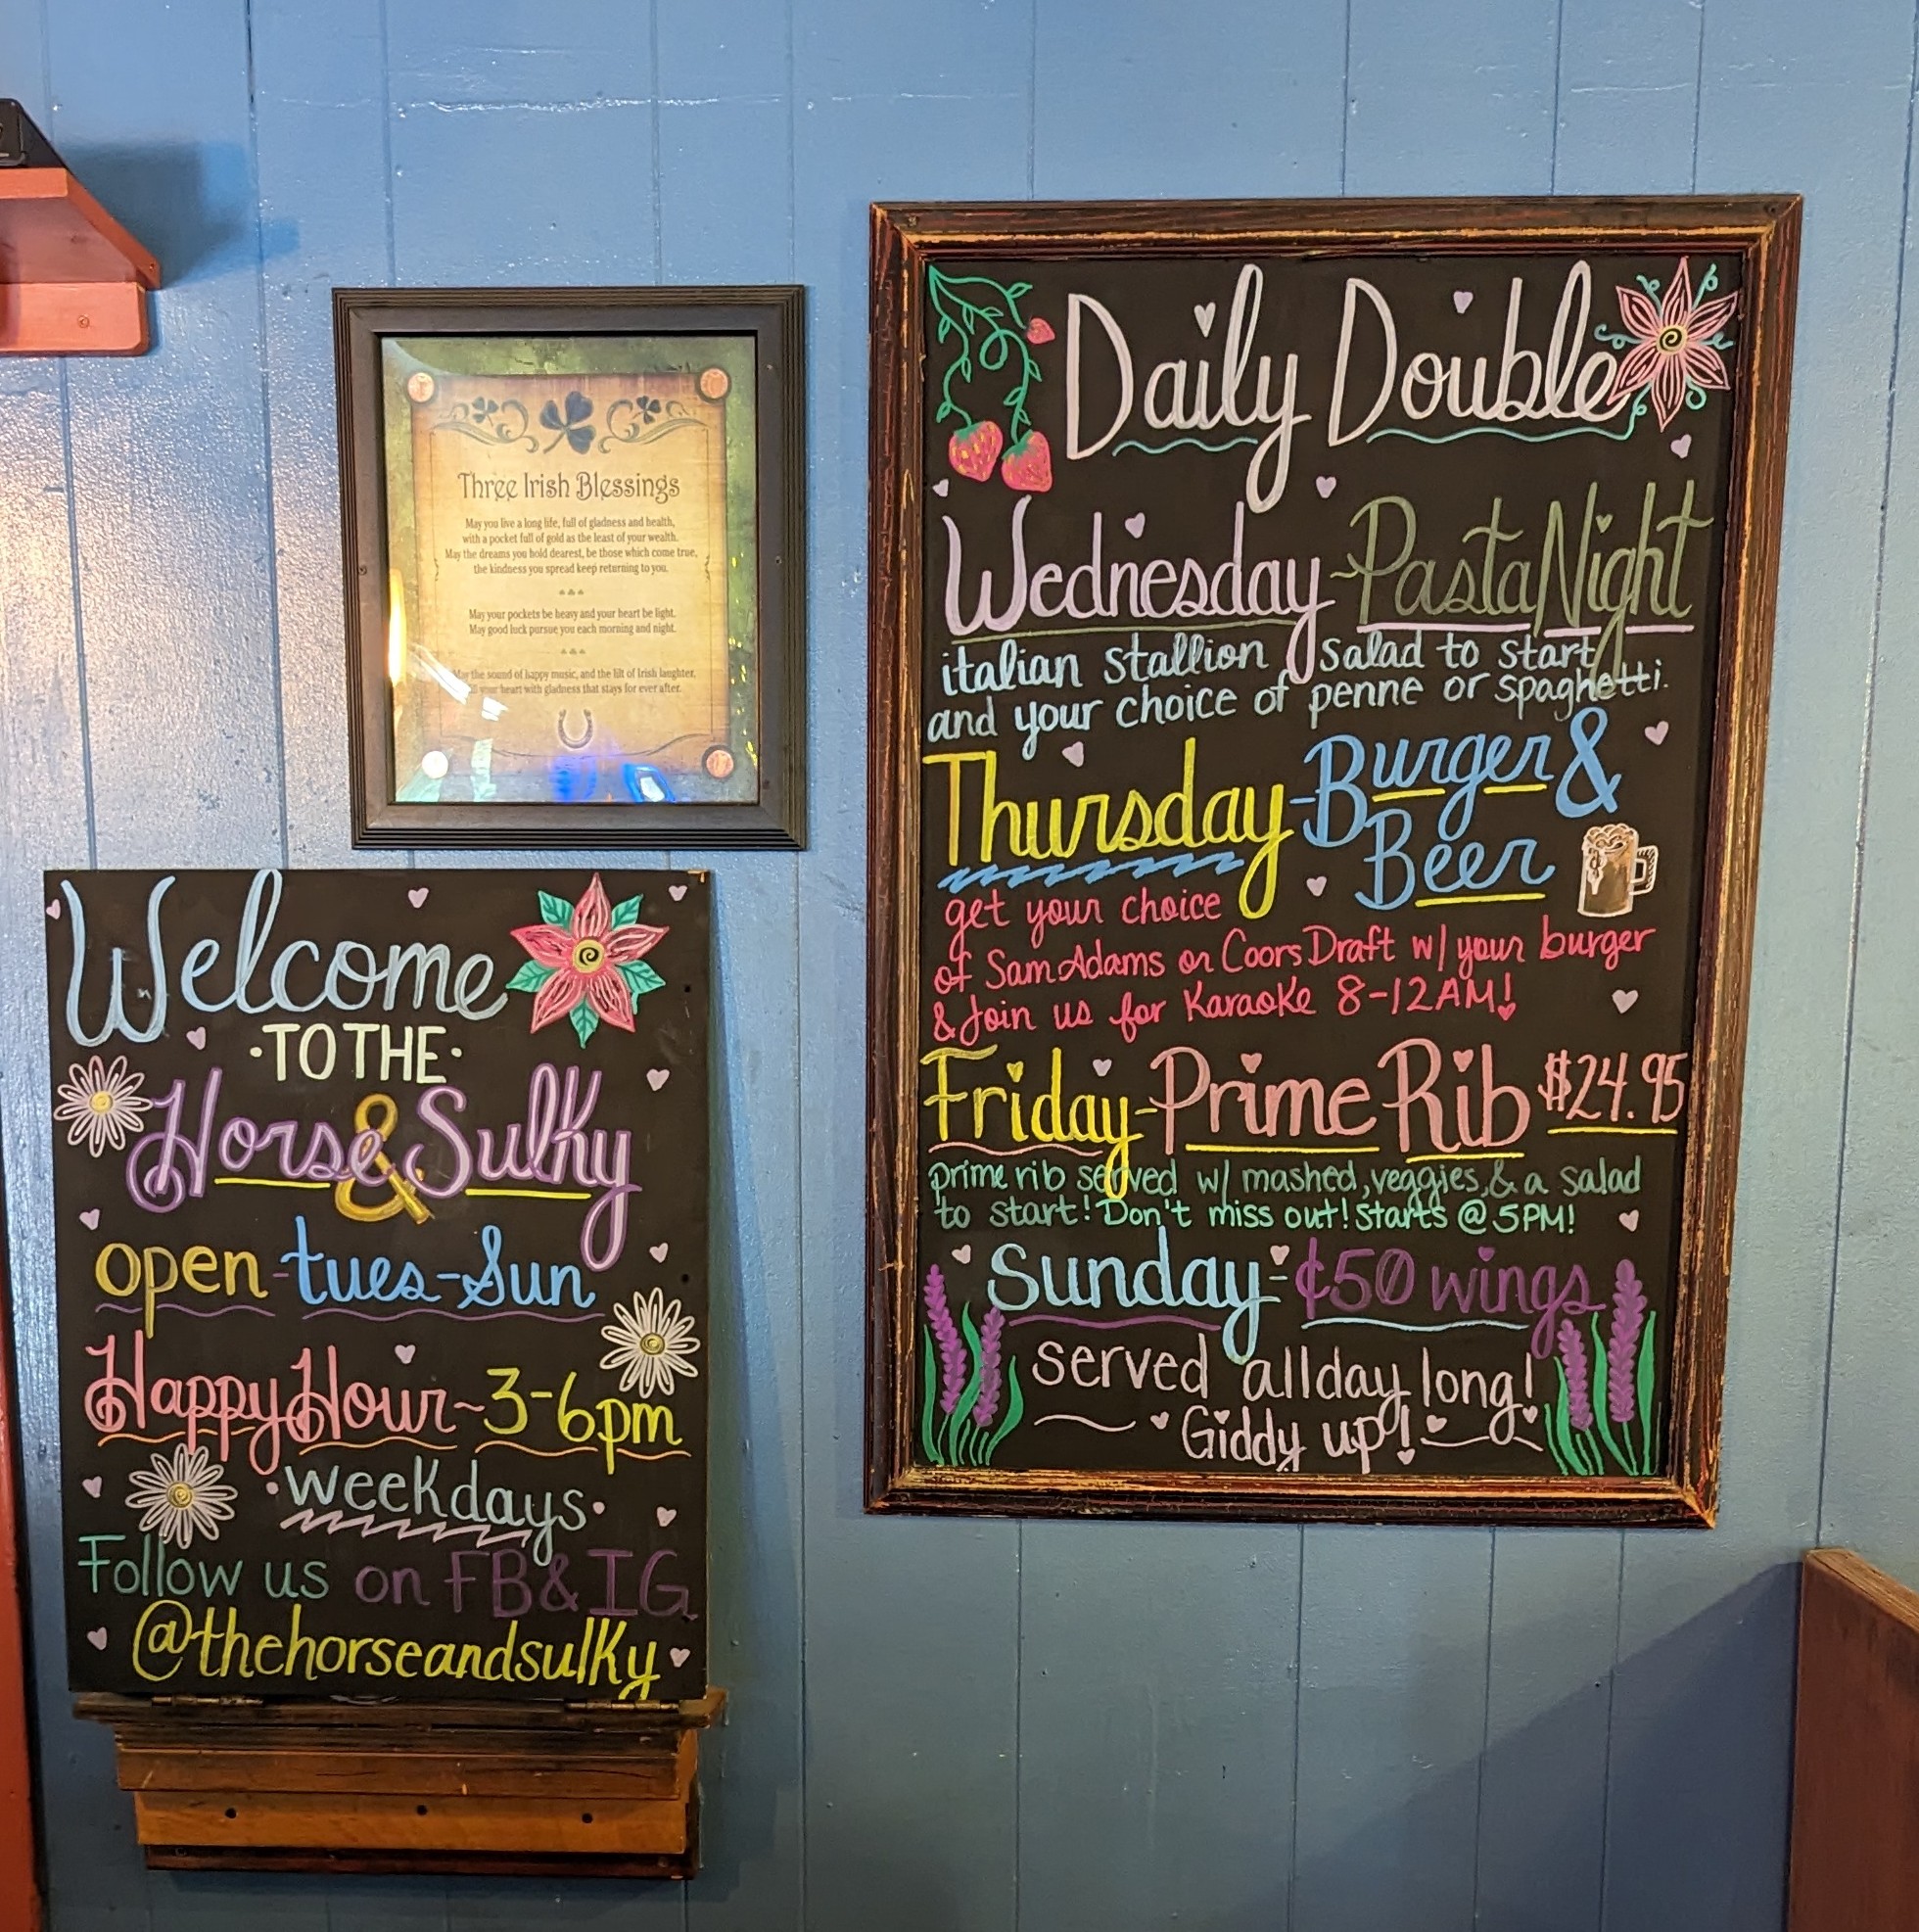 Three Irish Blessings
May you live a long life, full of gladness and health,
with a pocket full of gold as the least of your wealth.
May the dreams you hold dearest, be those which come true,
the kindness you spread keep returning to you.
May your pockets be heavy and your heart be light.
May good luck pursue you each morning and night.
the sound of happy music, and the lilt of Irish laughter,
your heart with gladness that stays for ever after.
Welcome
·TO THE·
Horse & Sulky
open-tues-Sun
Happy Hour~3-6pm
·weekdays·
Follow us on FB & IG
@thehorseandsulky
Daily Double
Wednesday-Pasta Night
italian stallion salad to start
and your choice of penne or spaghetti.
Thursday-Burger &
Beer
get your choice
of Sam Adams or Coors Draft w/ your burger
& Join us for Karaoke 8-12AM!
Friday-Prime Rib $24.95
prime rib served w/ mashed, veggies, & a salad
to start! Don't miss out! starts @ 5PM!
Sunday-¢50 wings
served all day long!
Giddy up!